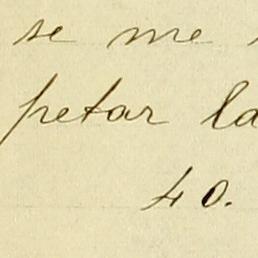 se me
petar la
40.